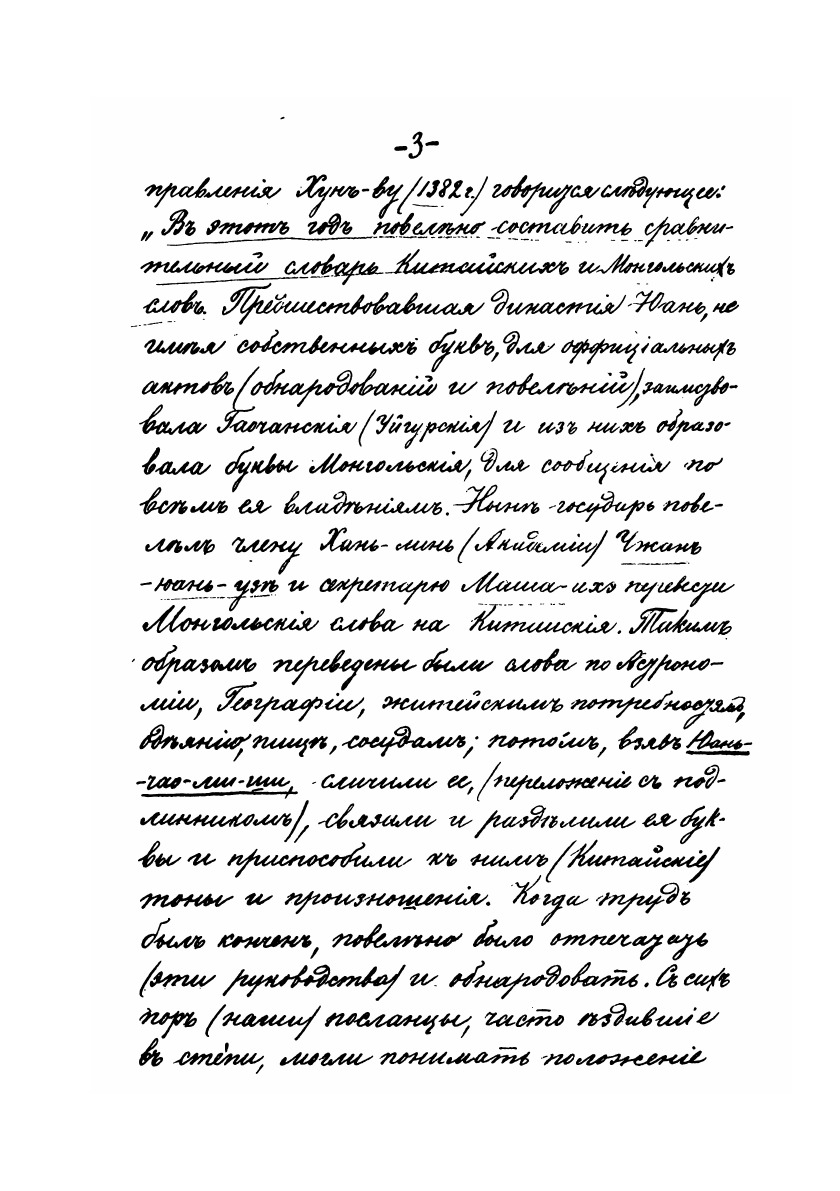 -3-
правленія Хунъ-ву (1382 г.) говорится слѣдующее:
„Въ этотъ годъ повелѣно составить сравни-
тельный словарь Китайскихъ и Монгольскихъ
словъ. Предшествовавшая династія Юань, не
имѣя собственныхъ буквъ, для оффиціальныхъ
актовъ (обнародованій и повелѣній), заимство-
вала Гаочанскія (Уйгурскія) и изъ нихъ образо-
вала буквы Монгольскія, для сообщенія по
всѣмъ ея владѣніямъ. Нынѣ государь пове-
лѣлъ члену Хань-линь (Академіи) Чжань
-юань-узѣ и секретарю Маша-ихэ перевести
Монгольскія слова на Китайскія. Такимъ
образомъ переведены были слова по Астроно-
міи, Географіи, житейскимъ потребностямъ,
одѣянію, пищѣ, сосудамъ; потомъ, взявъ Юань-
-чао-ми-ши, сличили ее, (переложеніе съ под-
линникомъ), связали и раздѣлили ея бук-
вы и приспособили къ нимъ (Китайскіе)
тоны и произношенія. Когда трудъ
былъ конченъ, повелѣно было отпечатать
(эти руководства) и обнародовать. Съ сихъ
поръ (наши) посланцы, часто ѣздившіе
въ стéпи, могли понимать положеніе